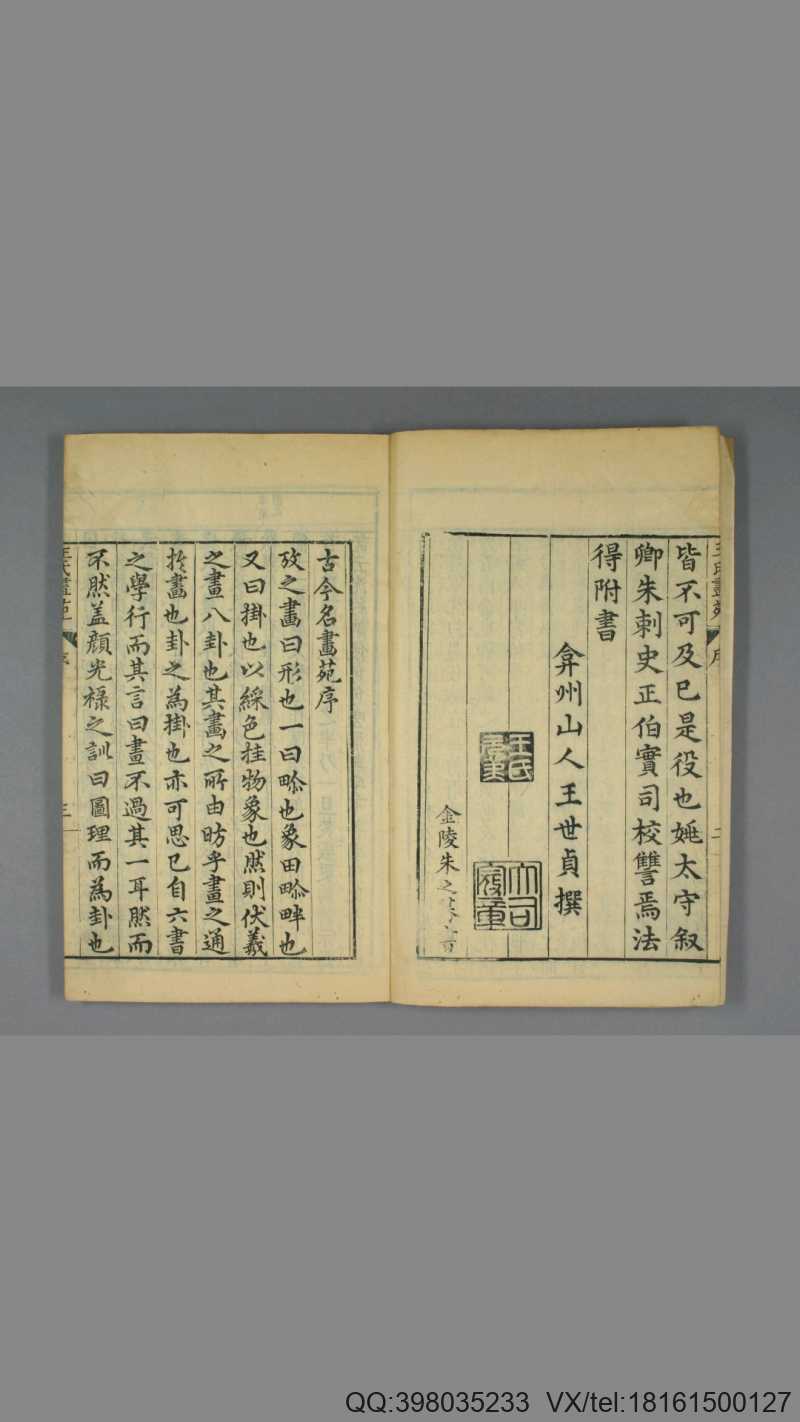 皆不可及已是役也姚太守叙
卿朱刺史正伯實司校讐焉法
得附書
弇州山人王世貞撰
王氏
金陵朱之
古今名畫苑序
攷之畫曰形也一曰畛也象田畛畔也
又曰掛也以綵色挂物象也然則伏羲
之畫八卦也其畫之所由昉乎畫之通
於畵也卦之為掛也亦可思已自六書
之學行而其言曰畫不過其一耳然而
不然盖顔光祿之訓曰圖理而為卦也
王氏畫苑
序
三
QQ:398035233 VX/tel:18161500127